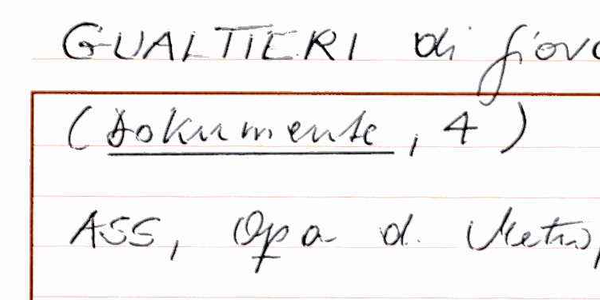 GUALTIERI di Giova
(Dokumente, 4)
ASS, Opa d. Metrop